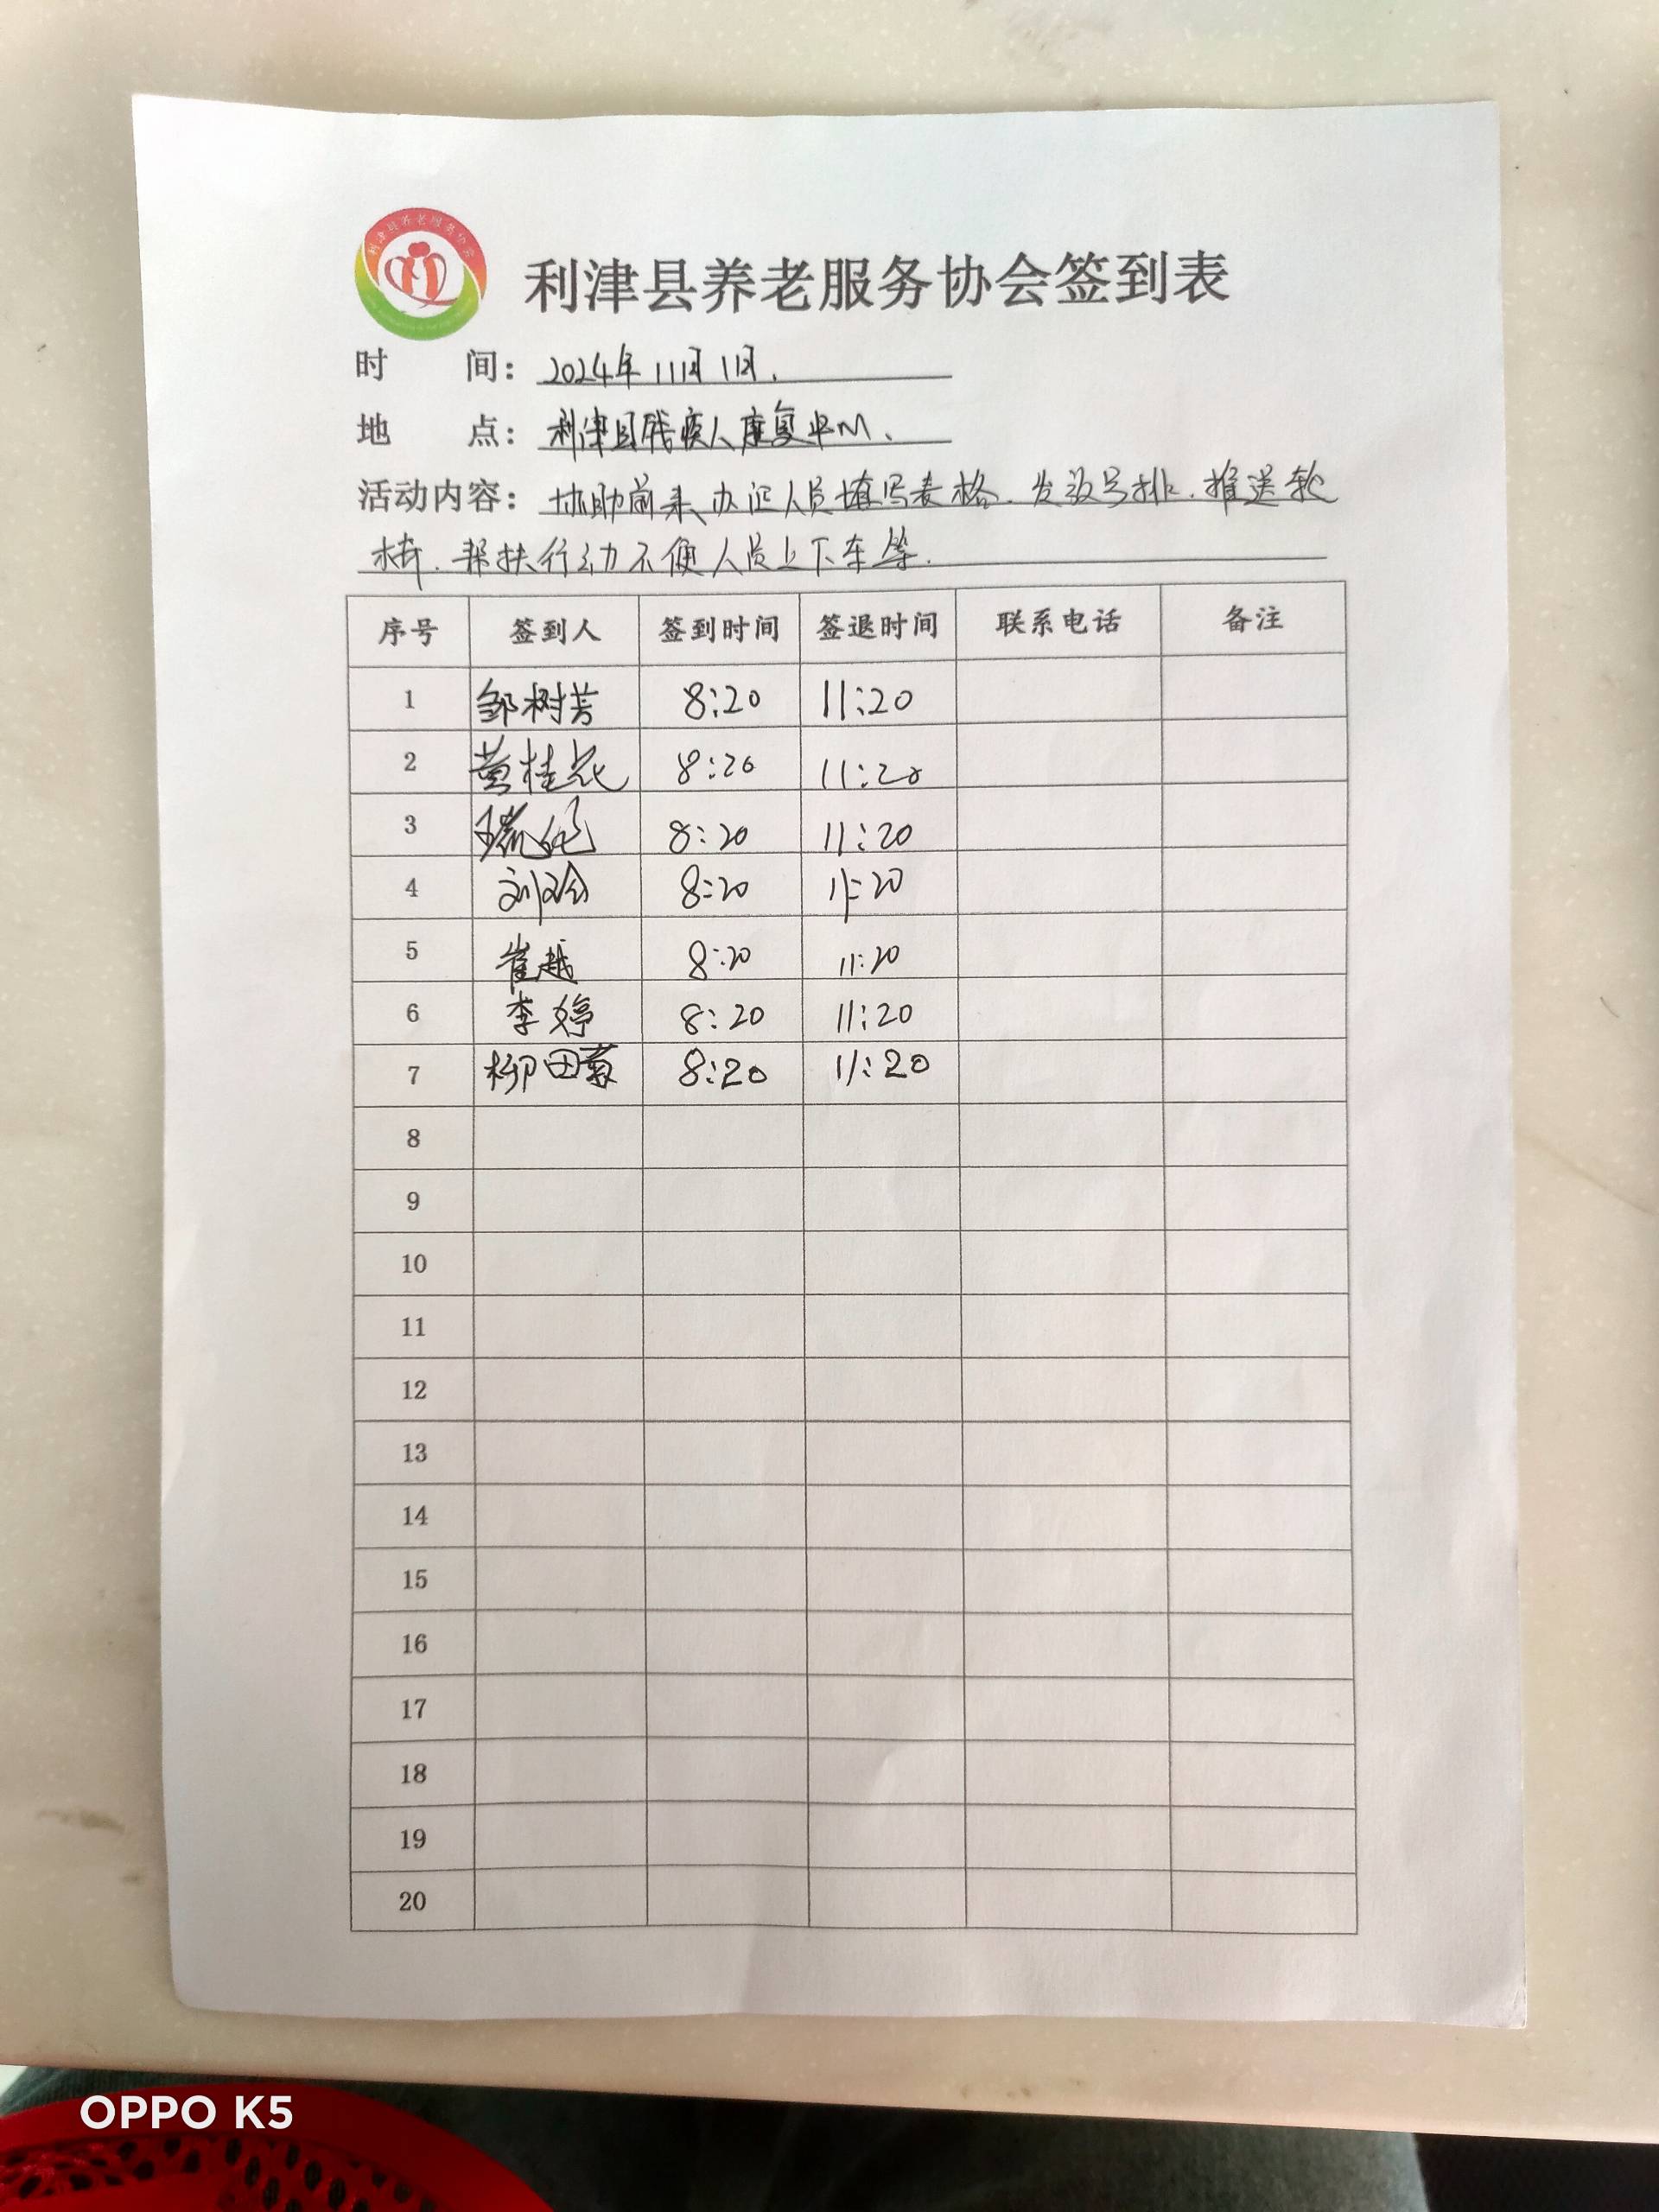 利津县养老服务协会
利津县养老服务协会签到表
时 间：2024年11月1日.
地 点：利津县残疾人康复中心、
活动内容：协助前来办证人员填写表格、发放号排、推送轮
椅、帮扶行动不便人员上下车等.
序号 签到人 签到时间 签退时间 联系电话 备注
1 邹树芳 8:20 11:20
2 黄桂花 8:20 11:20
3 8:20 11:20
4 刘玲 8:20 11:20
5 崔越 8:20 11:20
6 李婷 8:20 11:20
7 柳田菊 8:20 11:20
8
9
10
11
12
13
14
15
16
17
18
19
20
OPPO K5